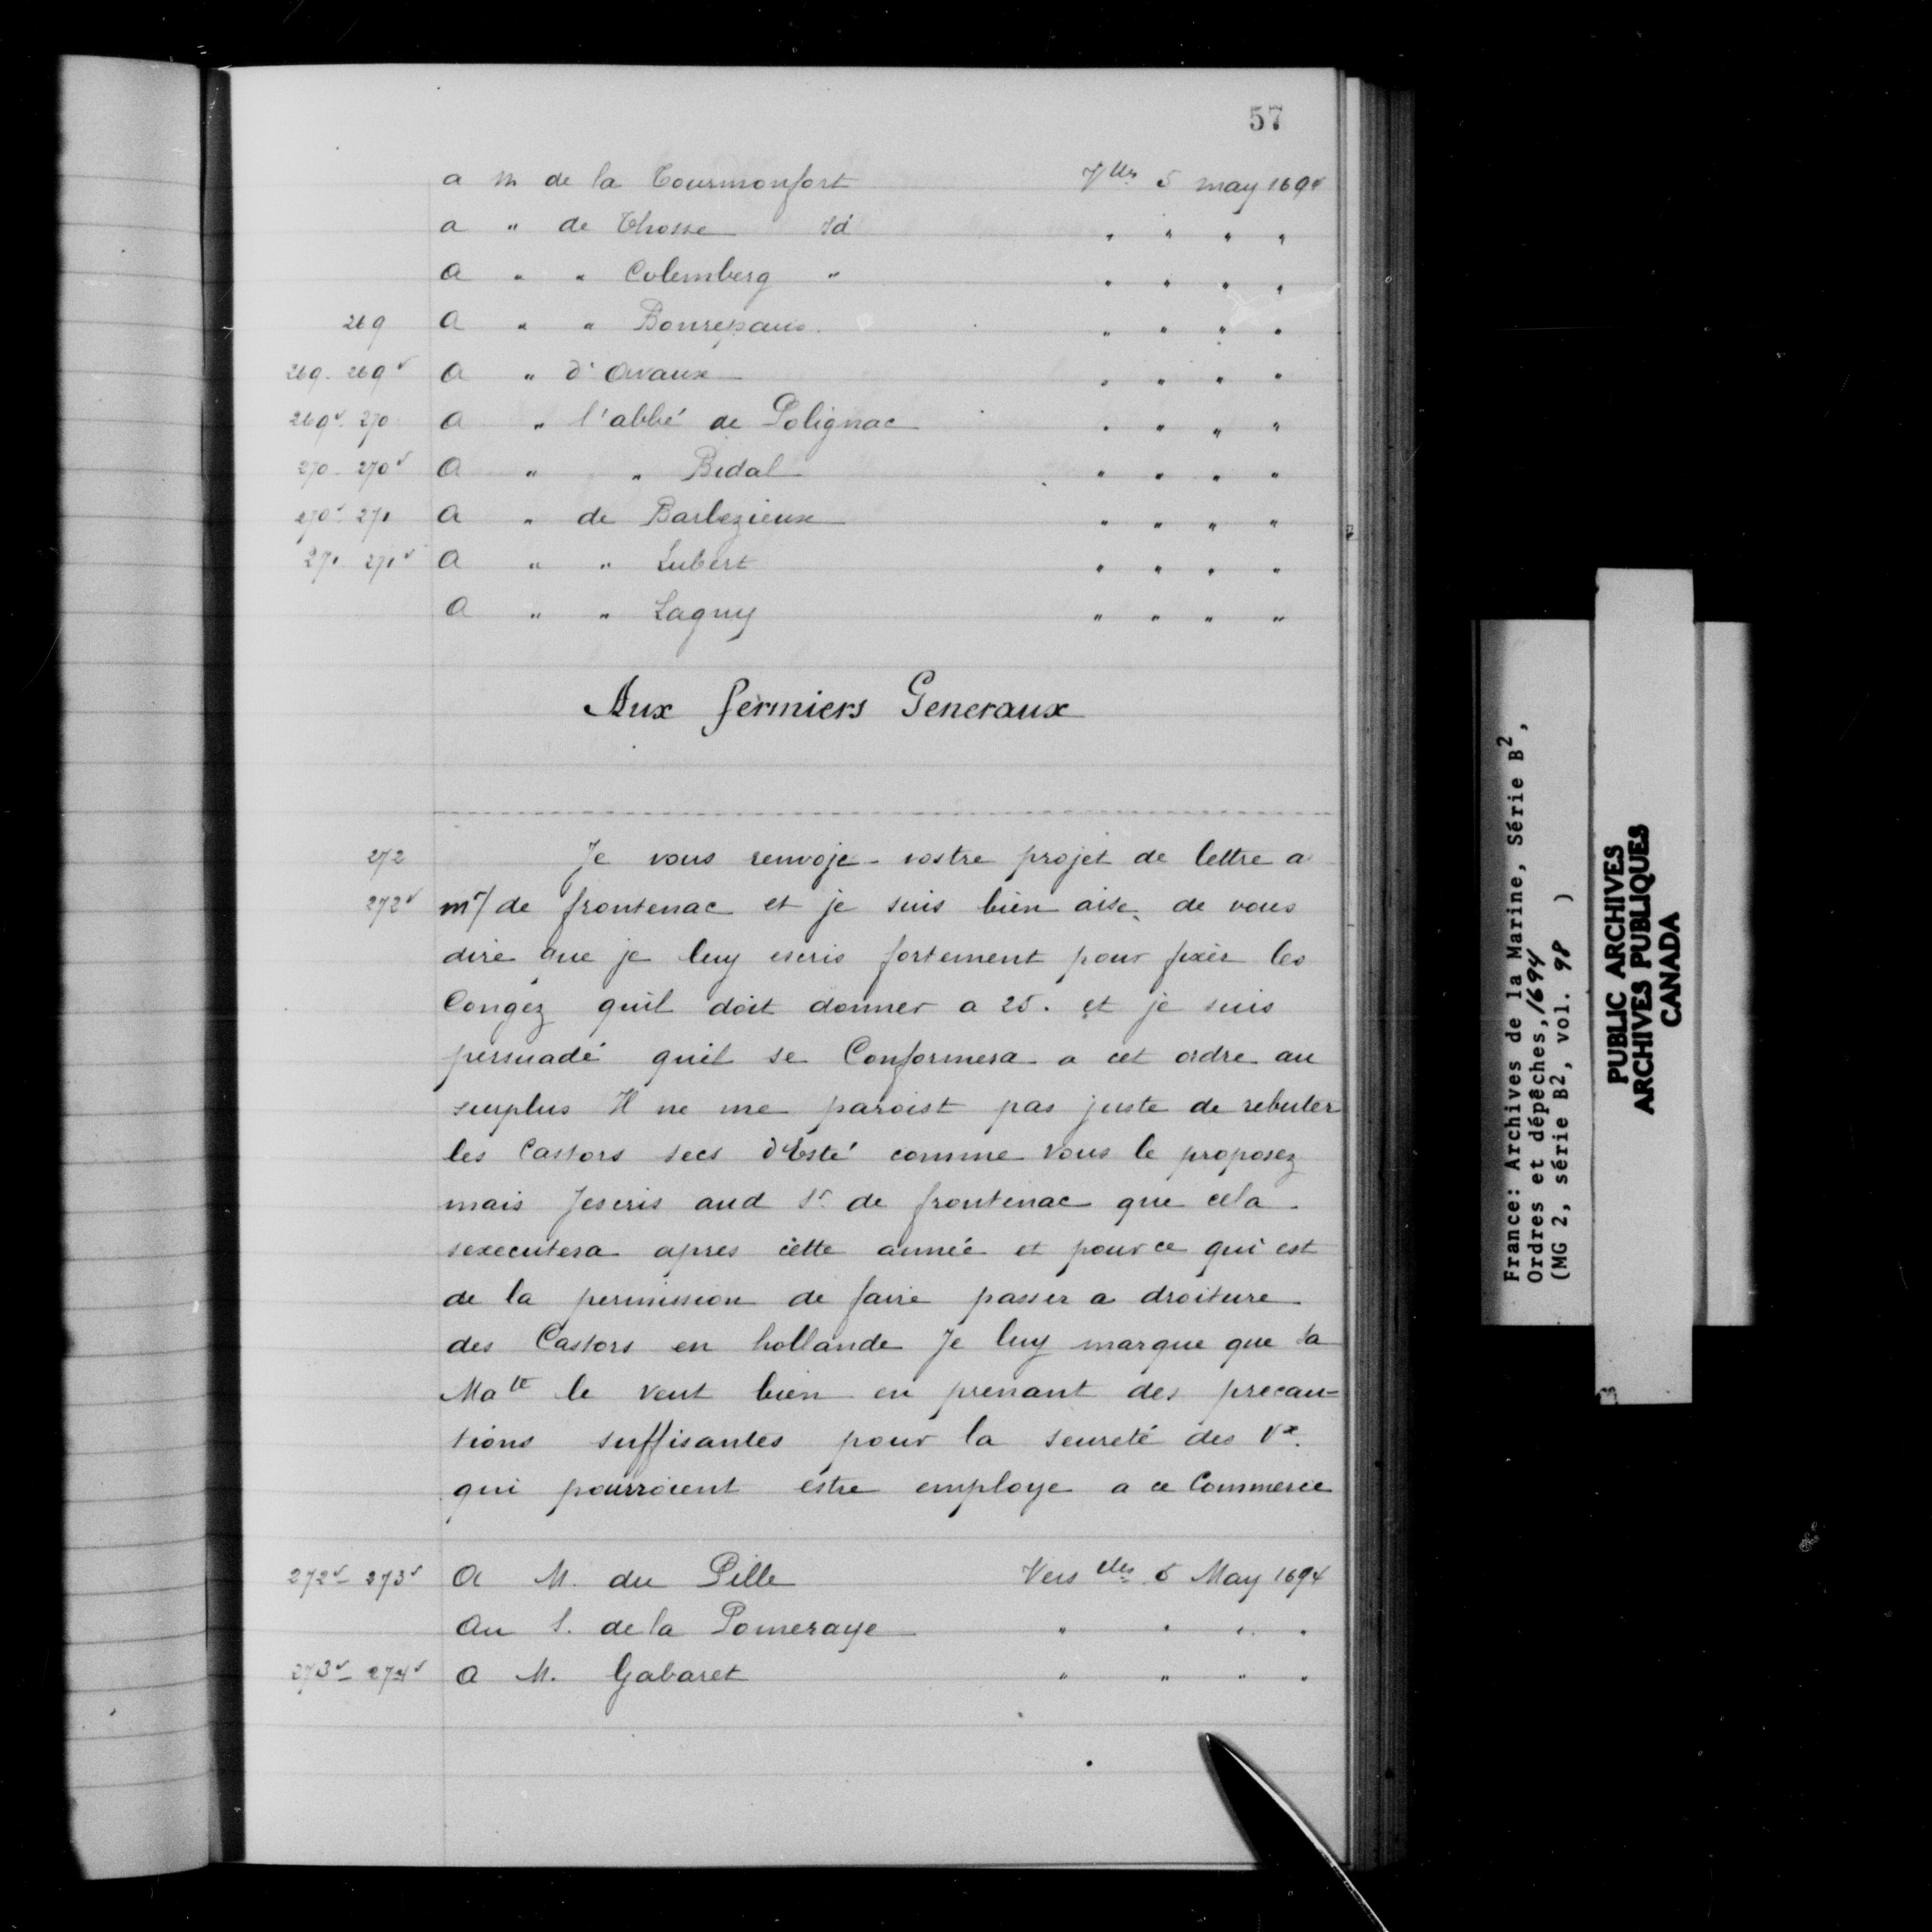 57
a m de la Tourmonfort Vlles 5 may 1694
a " de Thosse id " " " "
a " " Colemberg " " " " "
269 a " " Bonrepaus. " " " "
269. 269v a " d'avaux " " " "
269v. 270 a " l'abbé de Polignac " " " "
270. 270v a " " Bidal " " " "
270v. 271 a " de Barbezieux " " " "
271. 271v a " " Lubert " " " "
a " " Lagny " " " "
Aux fermiers Generaux
272 Je vous renvoje vostre projet de lettre a
272v mr/ de frontenac et je suis bien aise de vous
dire que je luy escris fortement pour fixer les
Congez quil doit donner a 25. et je suis
persuadé quil se Conformera a cet ordre au
surplus Il ne me paroist pas juste de rebuter
les Castors secs d'Esté comme vous le proposez
mais Jescris aud Sr. de frontenac que cela
sexecutera apres cette année et pour ce qui est
de la permission de faire passer a droiture
des Castors en hollande Je luy marque que sa
Matté le veut bien en prenant des precau=
tions suffisantes pour la seureté des Vx.
qui pourroient estre employe a ce Commerce
272v - 273v a M. du Pille Versalles 5 May 1694
au S. de la Pomeraye " " " "
273v - 274v a M. Gabaret " " " "
France: Archives de la Marine, Série B2,
Ordres et dépêches, 1694
(MG 2, série B2, vol. 98 )
PUBLIC ARCHIVES
ARCHIVES PUBLIQUES
CANADA